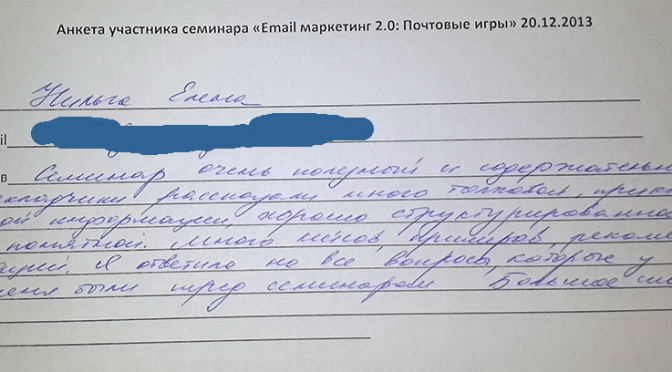 Анкета участника семинара «Email маркетинг 2.0: Почтовые игры» 20.12.2013
Нильга Елена
il
в Семинар очень полезный и содержательн
кладчики рассказали много толковой, прик
ой информации, хорошо структурированно
понятной. Много кейсов, примеров, рекоме
аций. Я ответила на все вопросы, которые у
еня были перед семинаром Большое